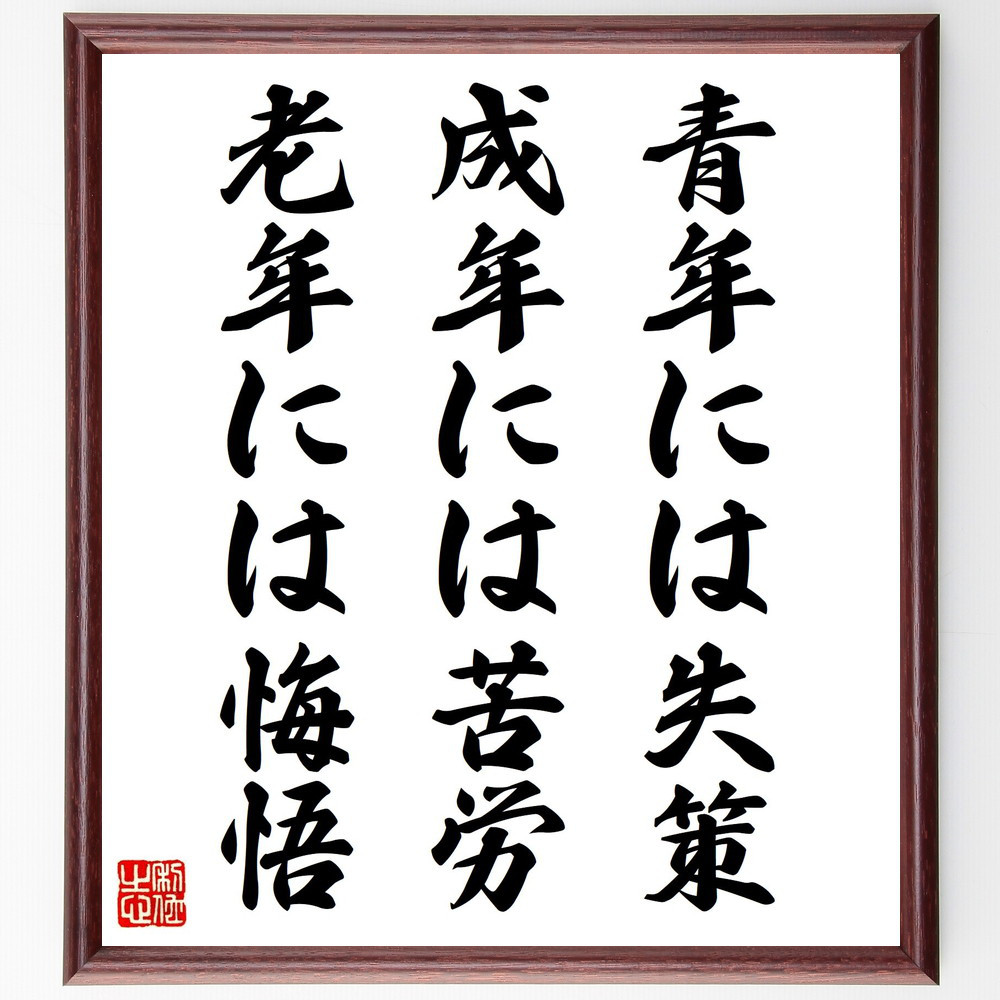 青年には失策
成年には苦労
老年には悔悟